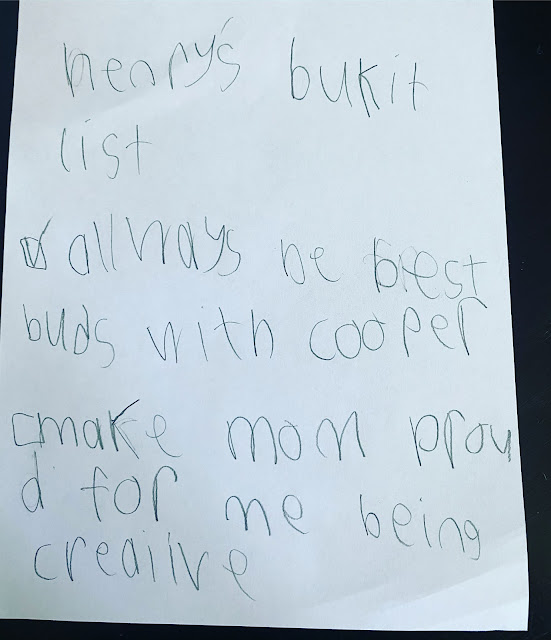 henry's bukit
list
☑ allways be best
buds with cooper
☐ make mom prou
d for me being
creaiive